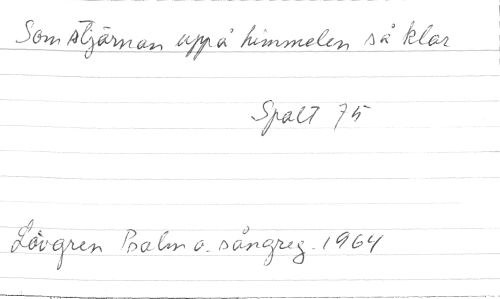 Som stjärnan uppå himmelen så klar
Spalt 75
Lövgren Psalm o. sångreg. 1964